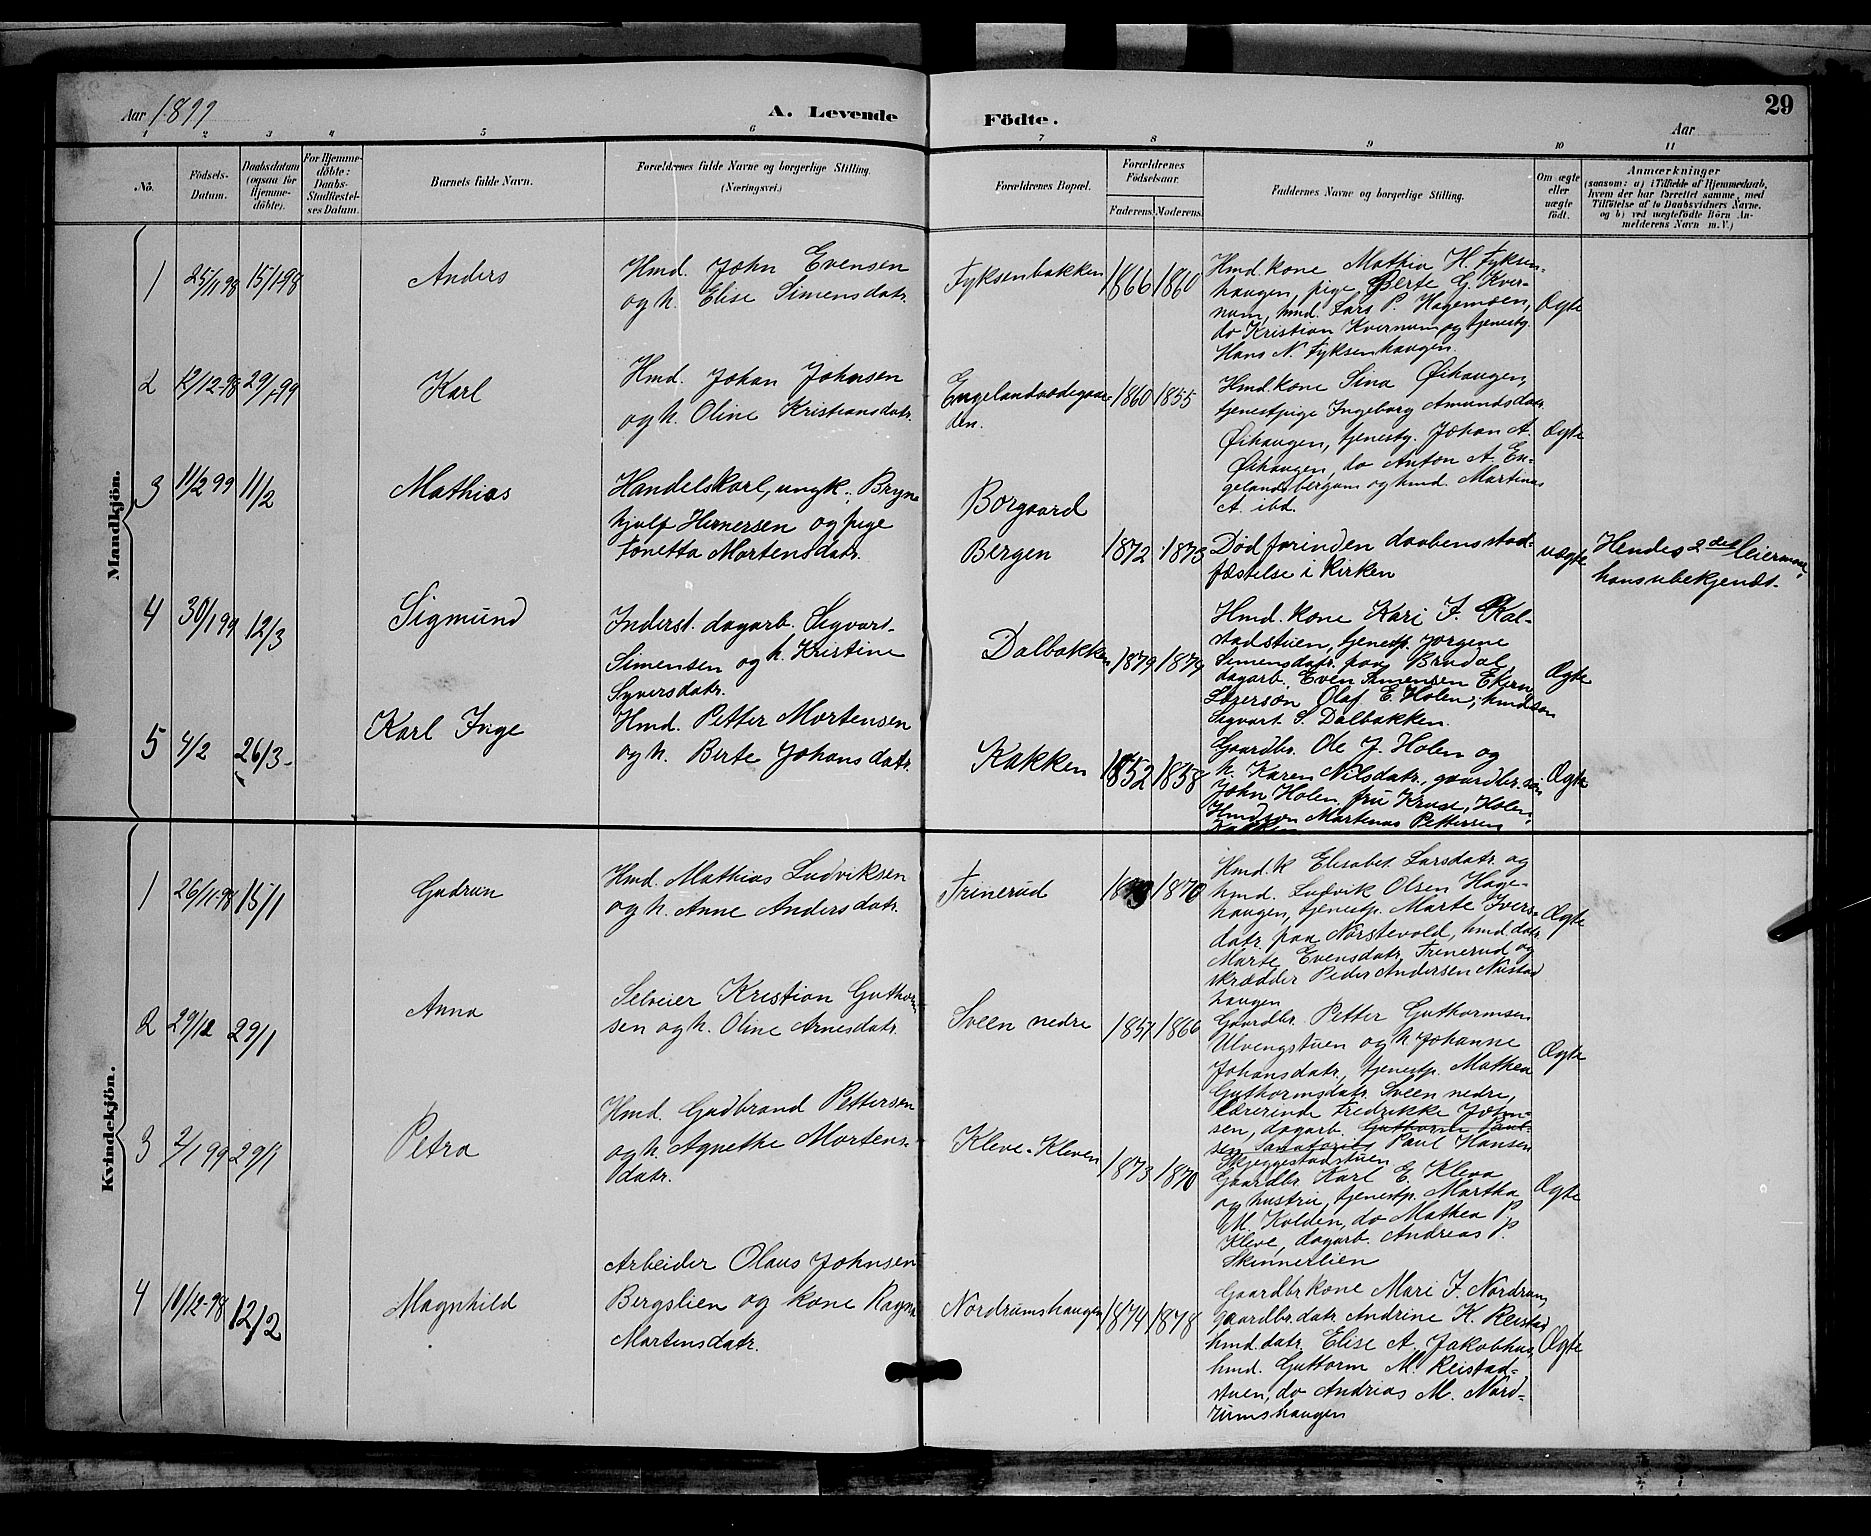 Aar 1899
A. Levende
Födte.
29
Aar
1 2 3 4 5 6 7 8 9 10 11
No.
Födsels-
Datum.
Daabsdatum
(ogsaa for
Hjemme-
döbte).
For Hjemme-
döbte:
Daabs-
Stadfæstel-
ses Datum.
Barnets fulde Navn.
Forældrenes fulde Navne og borgerlige Stilling.
(Næringsvei.)
Forældrenes Bopæl.
Forældrenes
Födselsaar.
Faderens. Moderens.
Faddernes Navne og borgerlige Stilling.
Om ægte
eller
uægte
födt.
Anmærkninger
(saasom: a) i Tilfælde af Hjemmedaab,
hvem der har forrettet samme, med
Tilföielse af to Daabsvidners Navne,
og b) ved uægtefödte Börn An-
melderens Navn m. V.)
Mandkjön.
1 25/11 98 15/1 98
Anders
Hmd. John Evensen
og h. Elise Simensdatr.
Fyksenbakken
1866 1860
Hmd. kone Mathia H. Fyksen-
haugen, pige Berte G. Kver-
num, hmd. Lars P. Hagemoen,
do Kristian Kvernum og tjenestg.
Hans N. Fyksenhaugen.
Ægte
2 12/12-98 29/1 99
Karl
Hmd. Johan Johnsen
og h. Oline Kristiansdatr.
Engelandsødegaar-
den.
1860 1855
Hmd. kone Sina Øihaugen,
tjenestpige Ingeborg Amundsdatr.
Øihaugen, tjenestg. Johan A.
Øihaugen, do Anton A. En-
gelandsbergum og hmd. Martinus
A. ibd.
Ægte
3 11/2 99 11/2
Mathias
Handelskarl, ungk. Bryn-
hjulf Hemersen og pige
Tonetta Mortensdatr.
Borgaard
Bergen
1872 1873
Død forinden daabens stad-
fæstelse i Kirken
uægte
Hendes 2det leiermaal,
hans ubekjendt.
4 30/1 99 12/3
Sigmund
Inderst. dagarb. Sigvard
Simensen og h. Kristine
Syversdatr.
Dalbakken
1879 1879
Hmd. kone Kari J. Kol-
stadstuen, tjenestp. Jørgine
Simensdatr. paa Brudal,
dagarb. Even Simensen Ekern,
Søn Olaf E. Holen, hmdsøn
Sigvart S. Dalbakken.
Ægte
5 4/2 26/3
Karl Inge
Hmd. Petter Mortensen
og h. Berte Johansdatr.
Kakken
1852 1858
Gaardbr. Ole J. Holen og
h. Karen Nilsdatr., gaardbr. søn
John Holen, fru Kruse, Holen,
Hmdsøn Martinus Pettersen
Kakken
Ægte
Kvindekjön.
1 26/11-98 15/1
Gudrun
Hmd. Mathias Ludviksen
og h. Anne Andersdatr.
Trinerud
1870
Hmd. k Elisabet Larsdatr. og
hmd. Ludvik Olsen Hage-
haugen, tjenestp. Marte Ivers-
datr. paa Norstevold, hmd. datr.
Marte Evensdatr. Trinerud og
skrædder Peder Andersen Nustad
haugen
Ægte
2 29/12 29/1
Anna
Selveier Kristian Guthorm-
sen og h. Oline Arnesdatr.
Sveen nedre
1857 1866
Gaardbr. Petter Guthormsen
Ulvengstuen og h. Johanne
Johansdatr., tjenestp. Mathea
Guthormsdatr. Sveen nedre,
lærerinde Fredrikke John-
sen, dagarb. Guthorm Paul-
sen Sanatoriet Paul Hansen
Skjeggestadstuen
Ægte
3 2/1 99 29/1
Petra
Hmd. Gudbrand Pettersen
og h. Agnethe Mortens-
datr.
Kleve-Kleven
1873 1870
Gaardbr. Karl E. Kleva
og hustru, tjenestp. Martha
M. Kolden, do Mathea P.
Kleve, dagarb. Andreas P.
Skinnerlien
Ægte
4 10/12-98 12/2
Magnhild
Arbeider Olaus Johnsen
Bergslien og kone Ragna
Martensdatr.
Nordrumshaugen
1874 1878
Gaardbrkone Mari J. Nordrum,
gaardbr. datr. Andrine K. Reistad
hmd. datr. Elise A. Jakobhus,
hmd. Guttorm M. Reistad-
stuen, do Andrias M. Nord-
rumshaugen
Ægte